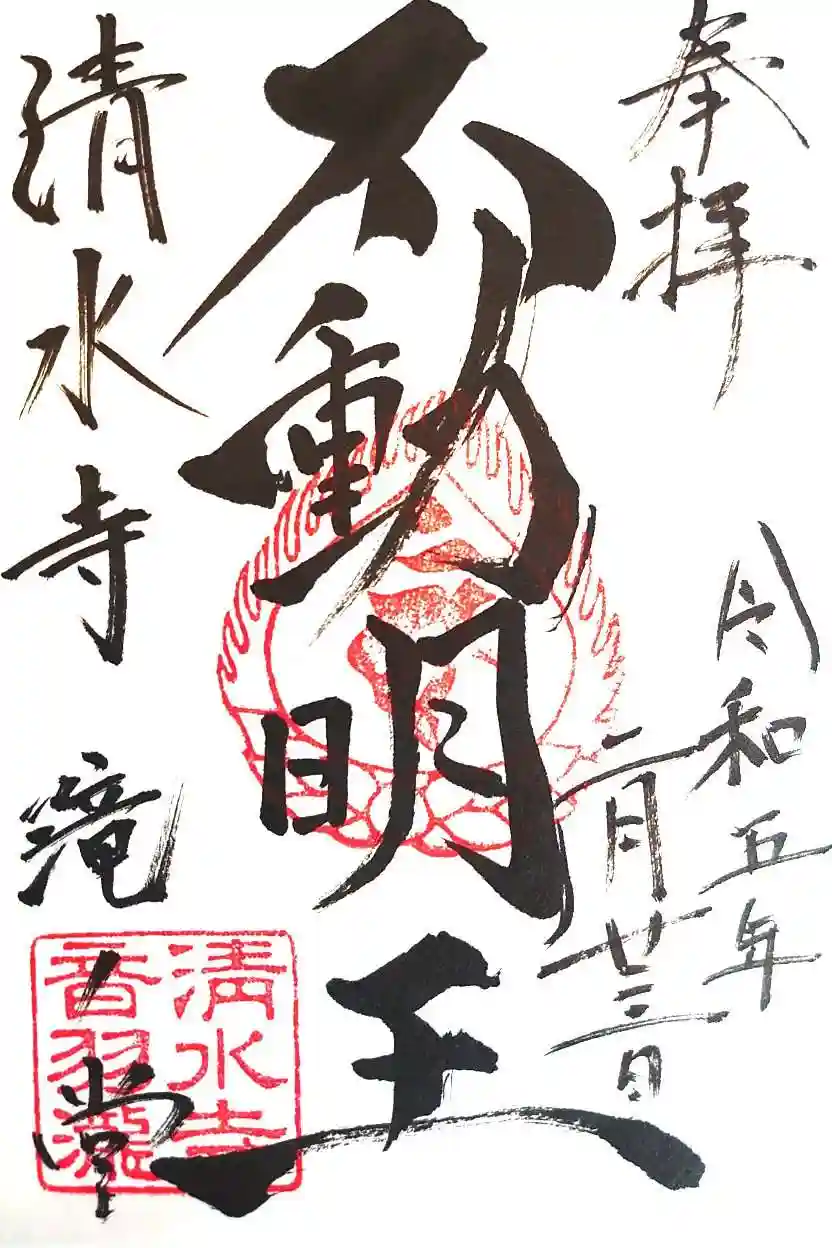 奉拝
令和五年
二月廿三日
不動明王
清水寺
滝之堂
清水寺
音羽瀧